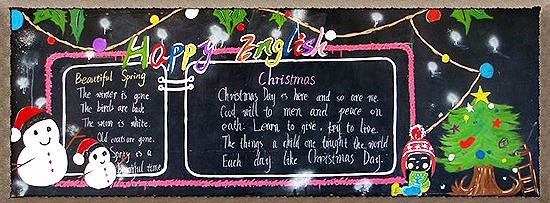 Happy English
Beautiful Spring
The winter is gone
The birds are back
The snow is white.
Old coats are gone.
is a
Beautiful time
Christmas
Christmas Day is here and so are me.
Cood will to men and peace on
eath. Learn to give, try to live.
The things a child one tought the world
Each day like Christmas Day.